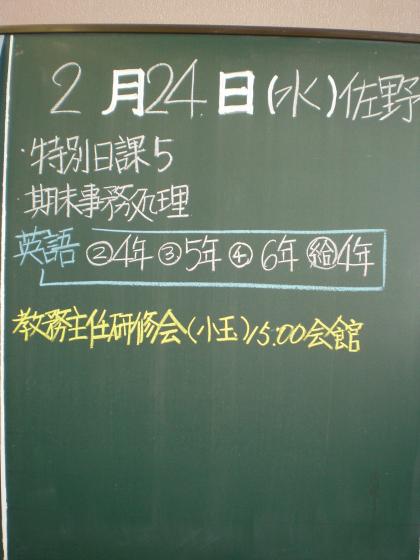 2月24日(水)佐野
・特別日課5
・期末事務処理
英語 ②4年 ③5年 ④6年 ㊗4年
教務主任研修会(小玉)15:00会館